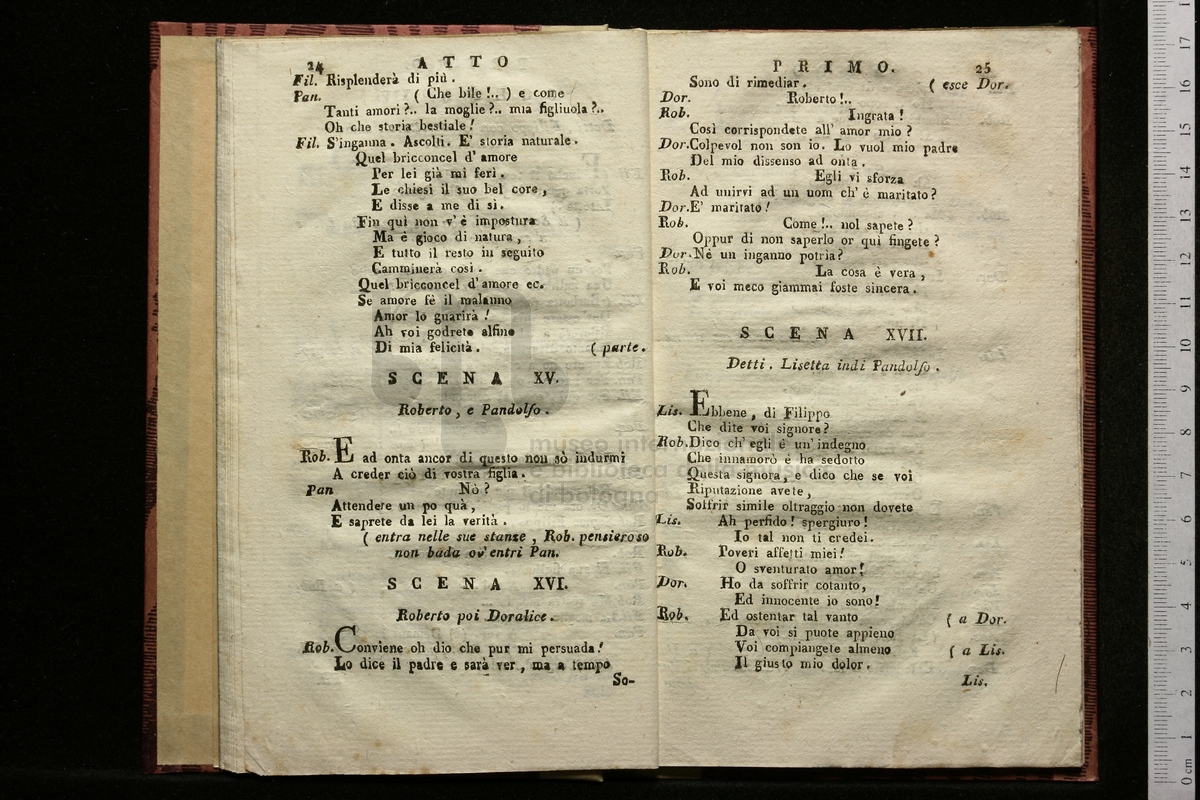 24 ATTO
Fil. Risplenderà di più.
Pan. ( Che bile !.. ) e come
Tanti amori ?.. la moglie ?.. mia figliuola ?..
Oh che storia bestiale !
Fil. S'inganna. Ascolti. E' storia naturale.
Quel bricconcel d' amore
Per lei già mi ferì.
Le chiesi il suo bel core,
E disse a me di sì.
Fin quì non v' è impostura
Ma è gioco di natura,
E tutto il resto in seguito
Camminerà così.
Quel bricconcel d' amore ec.
Se amore fè il malanno
Amor lo guarirà !
Ah voi godrete alfine
Di mia felicità. ( parte.
SCENA XV.
Roberto, e Pandolfo.
Rob. E ad onta ancor di questo non sò indurmi
A creder ciò di vostra figlia.
Pan Nò ?
Attendere un po quà,
E saprete da lei la verità.
( entra nelle sue stanze, Rob. pensieroso
non bada ov' entri Pan.
SCENA XVI.
Roberto poi Doralice.
Rob. Conviene oh dio che pur mi persuada !
Lo dice il padre e sarà ver, ma a tempo
So-
PRIMO. 25
Sono di rimediar. ( esce Dor.
Dor. Roberto !..
Rob. Ingrata !
Così corrispondete all' amor mio ?
Dor. Colpevol non son io. Lo vuol mio padre
Del mio dissenso ad onta.
Rob. Egli vi sforza
Ad unirvi ad un uom ch' è maritato ?
Dor. E' maritato !
Rob. Come !.. nol sapete ?
Oppur di non saperlo or quì fingete ?
Dor. Nè un inganno potria ?
Rob. La cosa è vera,
E voi meco giammai foste sincera.
SCENA XVII.
Detti. Lisetta indi Pandolfo.
Lis. Ebbene, di Filippo
Che dite voi signore ?
Rob. Dico ch' egli è un' indegno
Che innamorò é ha sedotto
Questa signora, e dico che se voi
Riputazione avete,
Soffrir simile oltraggio non dovete
Lis. Ah perfido ! spergiuro !
Io tal non ti credei.
Rob. Poveri affetti miei !
O sventurato amor !
Dor. Ho da soffrir cotanto,
Ed innocente io sono !
Rob. Ed ostentar tal vanto ( a Dor.
Da voi si puote appieno
Voi compiangete almeno ( a Lis.
Il giusto mio dolor.
Lis.
museo inte
e biblioteca della musica
di bologna
0 cm 1 2 3 4 5 6 7 8 9 10 11 12 13 14 15 16 17